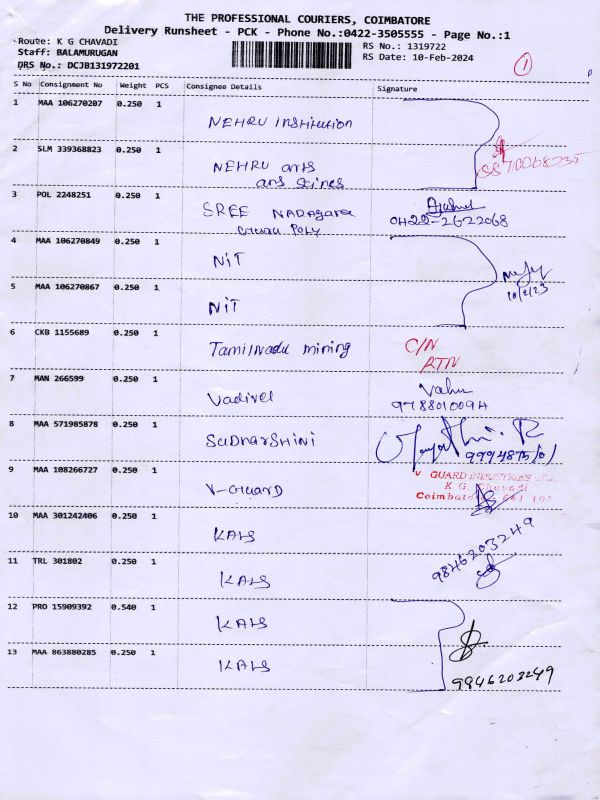 THE PROFESSIONAL COURIERS, COIMBATORE
Delivery Runsheet - PCK - Phone No.:0422-3505555 - Page No.:1
Route: K G CHAVADI
RS No.: 1319722
Staff: BALAMURUGAN
RS Date: 10-Feb-2024
DRS No.: DCJB131972201
1
S No Consignment No Weight PCS Consignee Details Signature
1 MAA 106270207 0.250 1
NEHRU institution
2 SLM 339368823 0.250 1
NEHRU arts
ans Scines
3 POL 2248251 0.250 1
SREE NARAYANA
POLY
0422-2622068
4 MAA 106270849 0.250 1
NIT
10/2/23
5 MAA 106270867 0.250 1
NIT
6 CKB 1155689 0.250 1
Tamilnadu mining
C/N
RTN
7 MAN 266599 0.250 1
Vadivel
8 MAA 571985878 0.250 1
SUDHARSHINI
9 MAA 108266727 0.250 1
V-Guard
V GUARD INDUSTRIES
K G. Chavadi
10 MAA 301242406 0.250 1
KALS
9846203249
11 TRL 301802 0.250 1
KALS
12 PRO 15909392 0.540 1
KALS
13 MAA 863880285 0.250 1
KALS
9846203249